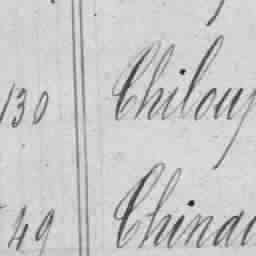 130 Chilou
49 China